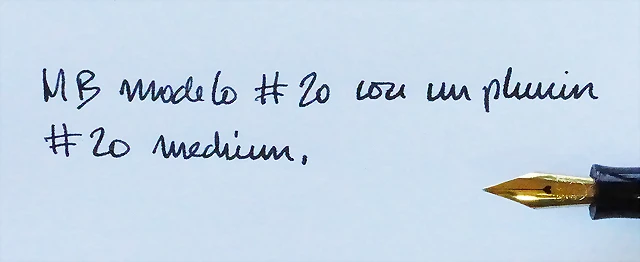 MB modelo #20 con un plumin
#20 medium.